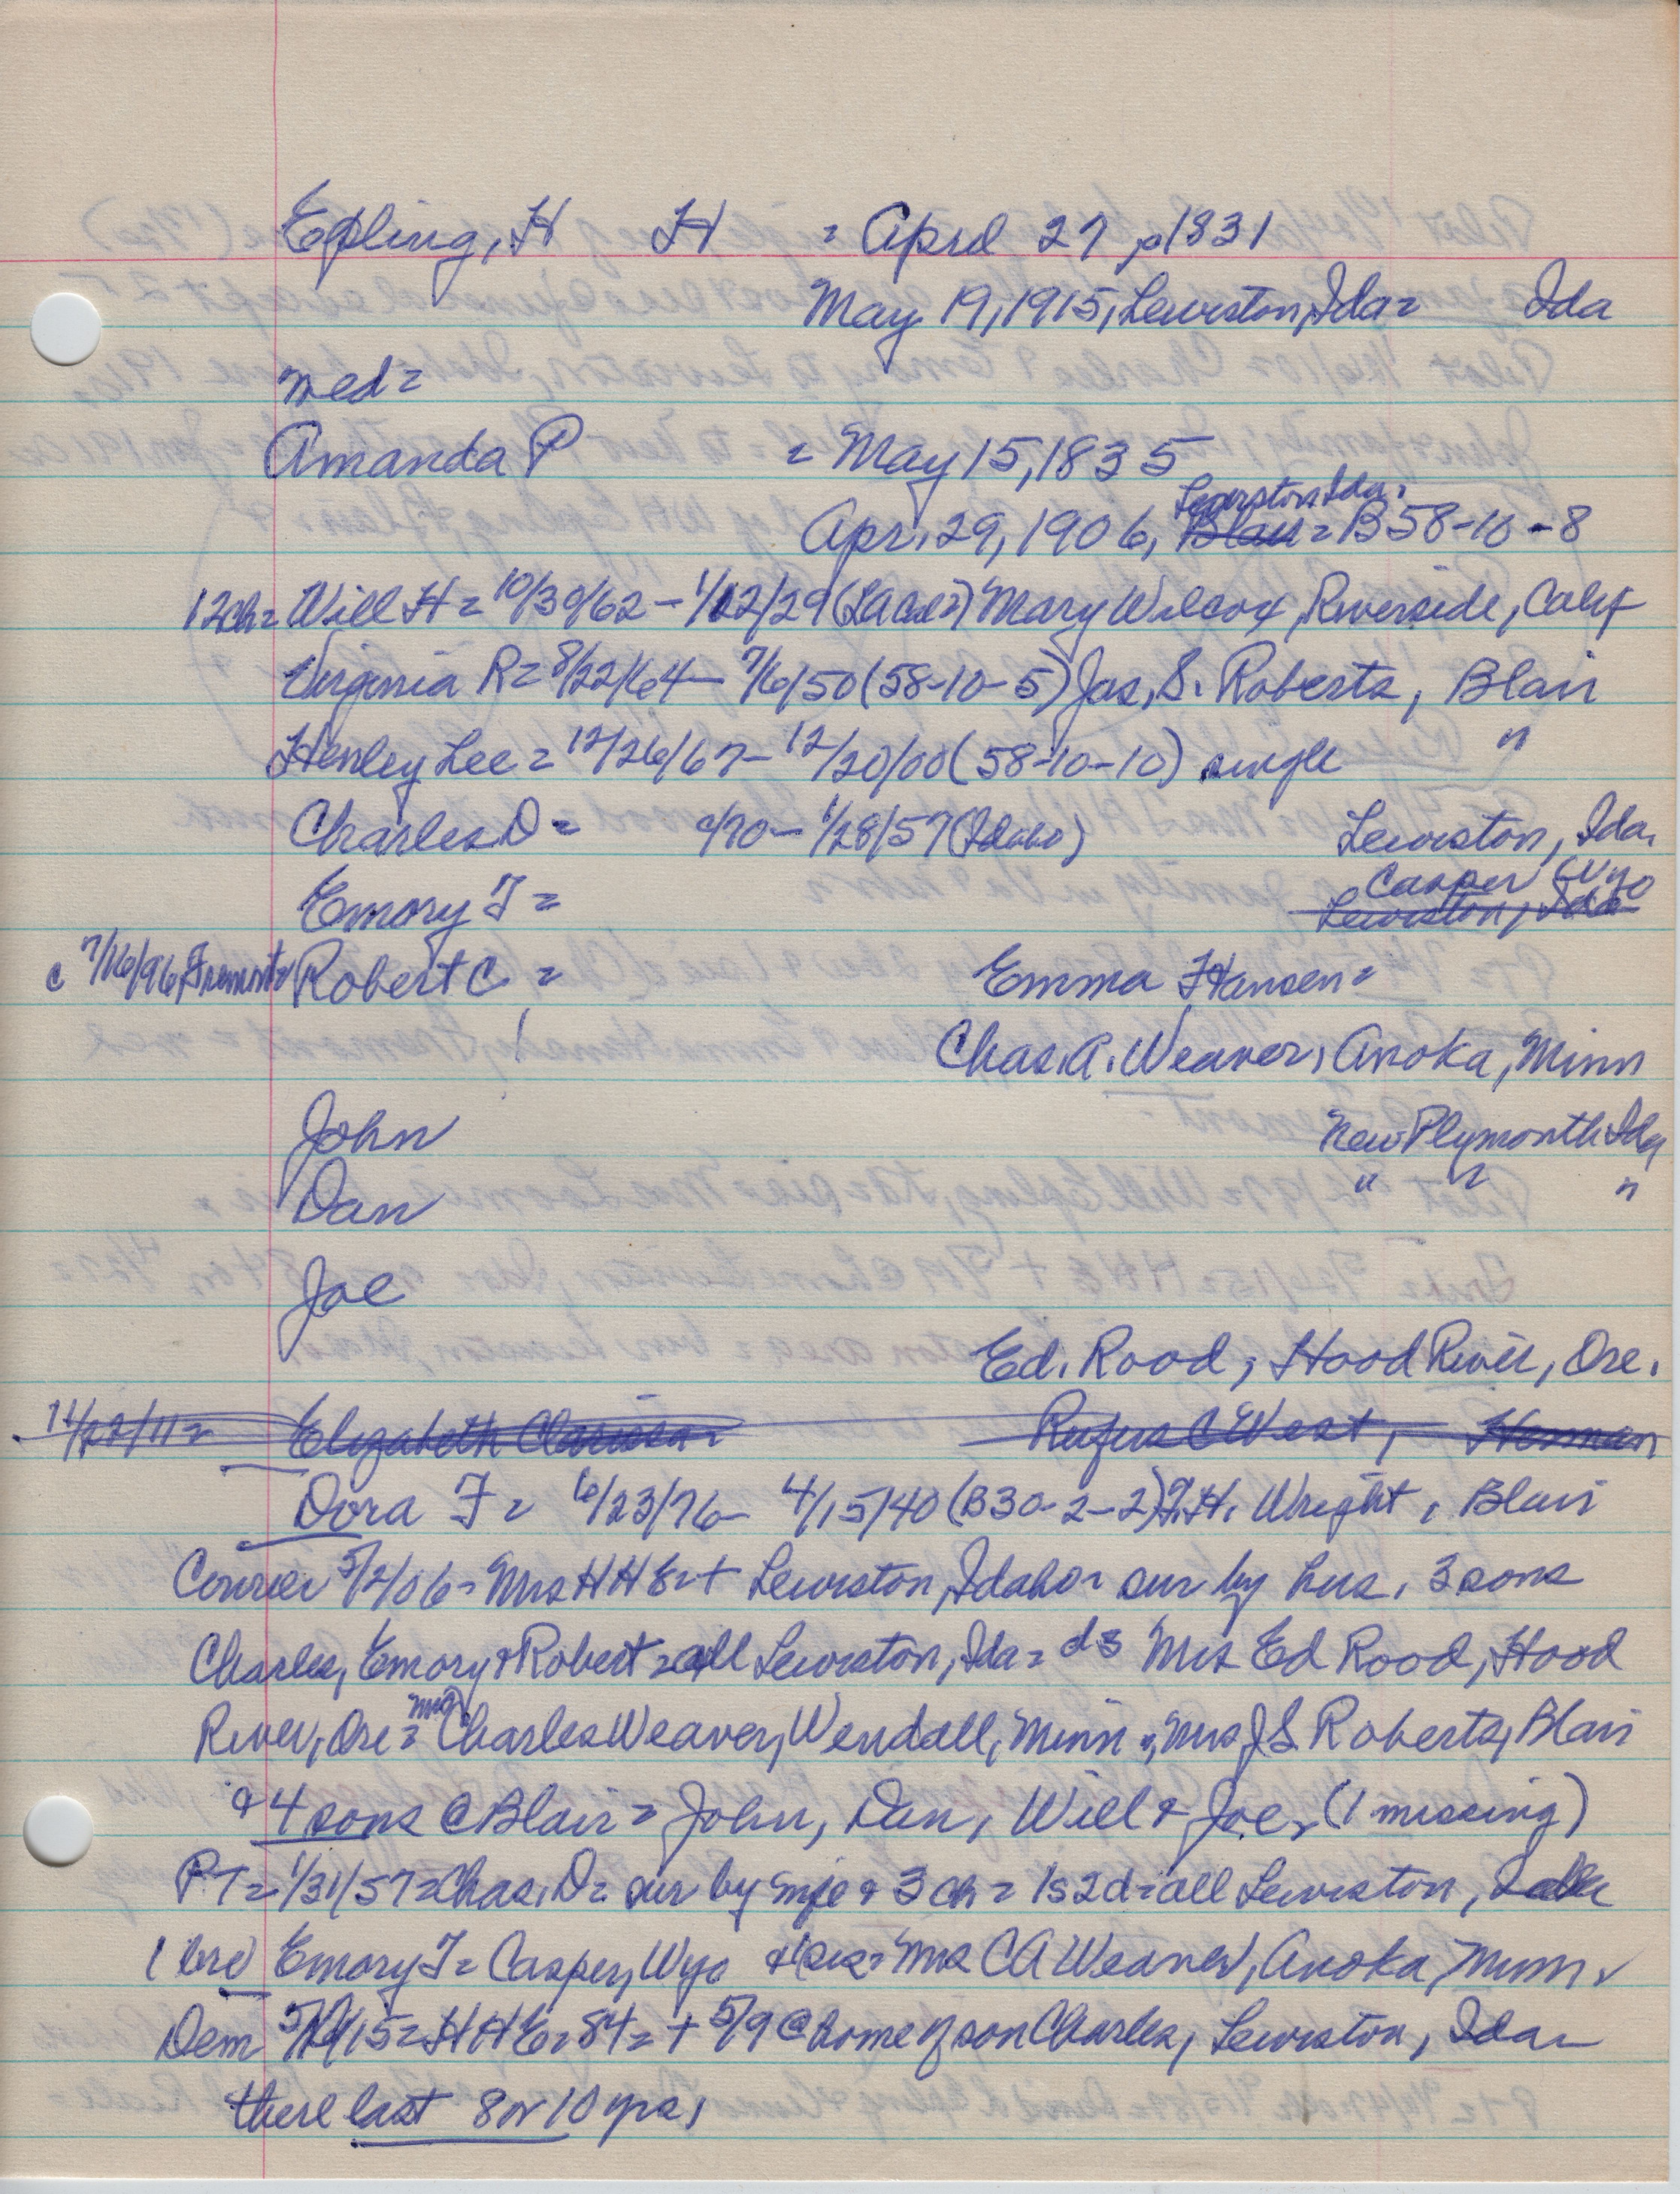 Epling, H H = April 27, 1831
May 19, 1915, Lewiston, Ida = Ida
med =
Amanda P = May 15, 1835
Lewiston Ida.
Apr. 29, 1906, Blair = B58-10-8
12ch = Will H = 10/30/62 - 1/22/29 (LA Cal =) Mary Wilcox, Riverside, Calif
Virginia R = 8/22/64 - 7/6/50 (58-10-5) Jas, S. Roberts, Blair
Henley Lee = 12/26/67 - 12/20/00 (58-10-10) single "
Charles D = c/70 - 1/28/57 (Idaho) Lewiston, Ida.
Casper Wyo
Emory F = Lewiston, Ida
c 7/16/96, Fremont Robert C. = Emma Hansen =
Chas. A. Weaver, Anoka, Minn
John New Plymouth Ida
Dan " " "
Joe
Ed. Rood, Hood River, Ore.
11/22/11 = Elizabeth Clarissa = Rufus C West, Herman
Dora F = 6/23/76 - 4/15/40 (B30-2-2) J.H. Wright, Blair
Courier 5/2/06 = Mrs H H E = + Lewiston, Idaho = sur by hus, 3 sons
Charles, Emory & Robert = all Lewiston, Ida = ds Mrs Ed Rood, Hood
River, Ore = Mrs Charles Weaver, Wendall, Minn =, Mrs J S. Roberts, Blair
& 4 sons @ Blair = John, Dan, Will & Joe, (1 missing)
PT = 1/31/57 = Chas. D = sur by wife & 3 ch = 1s 2d = all Lewiston,
1 bro Emory F = Casper, Wyo & 1 sis = Mrs C A Weaver, Anoka, Minn.
Dem 15 = H H E = 84 = + 5/9 @ home of son Charles, Lewiston, Ida =
there last 8 or 10 yrs,